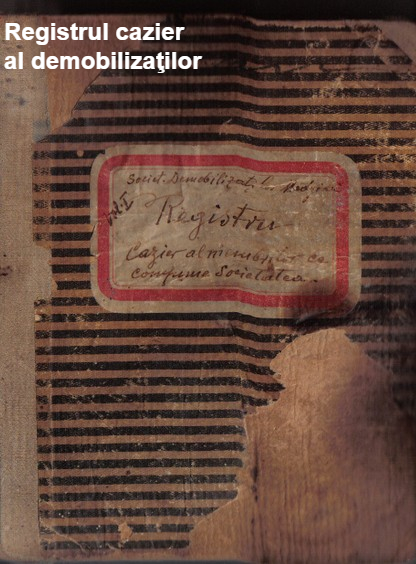 Registrul cazier
al demobilizaţilor
Societ. Demobilizaţ
Vol. I
Registru
Cazier al membrilor ce
compune Societatea.